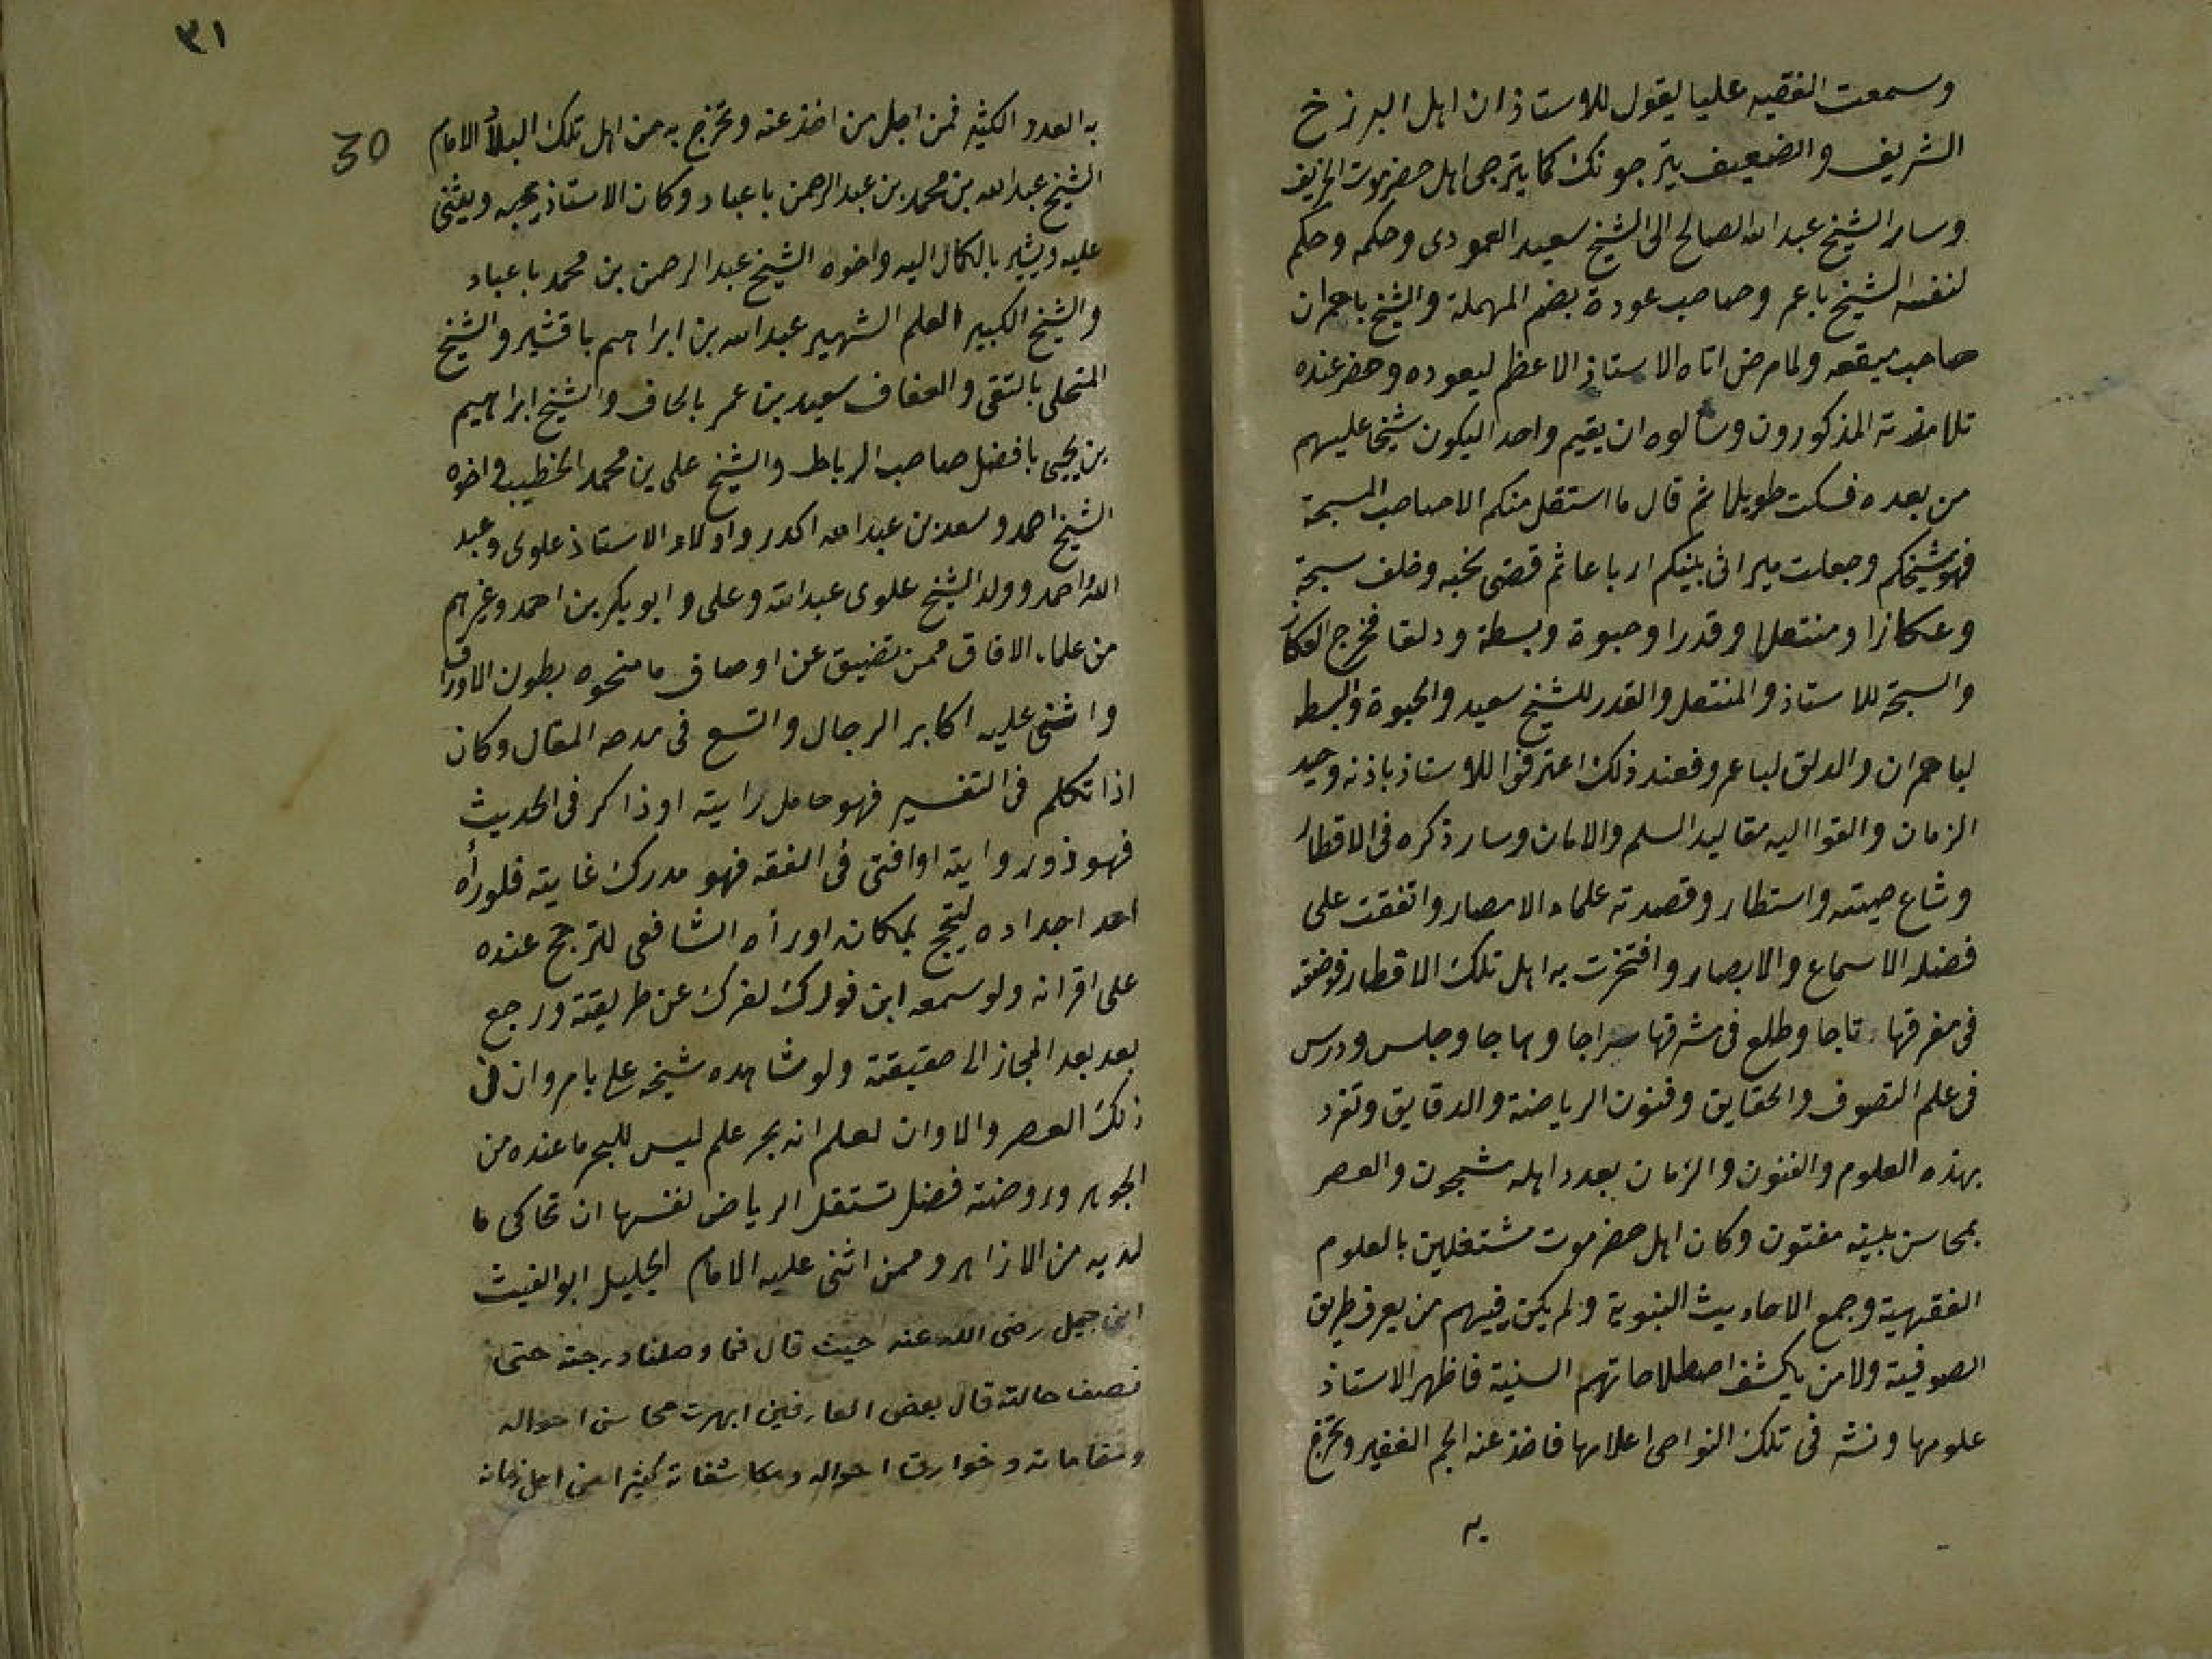 وسمعت الفقيه عليا يقول للاستاذ ان اهل البرزخ
الشريف والضعيف يترجونك كما يترجى اهل حضرموت الخريف
وسار الشيخ عبد الله الصالح الى الشيخ سعيد العمودى وحكمه وحكم
لنفسه الشيخ باعمر وصاحب عودة بضم المهملة والشيخ باحمران
صاحب ميقعه ولما مرض اتاه الاستاذ الاعظم ليعوده وحضر عنده
تلامذته المذكورون وسالوه ان يقيم واحدا ليكون شيخا عليهم
من بعده فسكت طويلا ثم قال ما استقل منكم الا صاحب السبحة
فهو شيخكم وجعلت ميراثى بينكم ارباعا ثم قضى نحبه وخلف سبحة
وعكازا ومنتعلا وقدرا وحبوة وبسطة ودلقا فخرج العكاز
والسبحة للاستاذ والمنتعل والقدر للشيخ سعيد والحبوة والبسطه
لباحمران والدلق لباعمر وفعند ذلك اعترفوا للاستاذ بانه وحيد
الزمان والقوا اليه مقاليد السلم والامان وسار ذكره فى الاقطار
وشاع صيته واستطار وقصدته علماء الامصار واتفقت على
فضله الاسماع والابصار وافتخرت به اهل تلك الاقطار فوضعته
فى مفرقها تاجا وطلع فى شرقها سراجا وهاجا وجلس ودرس
فى علم التصوف والحقايق وفنون الرياضة والدقايق وتفرد
بهذه العلوم والفنون والزمان بعدد اهله مشحون والعصر
بمحاسن بنيه مفتون وكان اهل حضرموت مشتغلين بالعلوم
الفقهية وجمع الاحاديث النبوية ولم يكن فيهم من يعرف طريق
الصوفية ولا من يكشف اصطلاحاتهم السنية فاظهر الاستاذ
علومها ونشر فى تلك النواحى اعلامها فاخذ عنه الجم الغفير وتخرج
به
٣١
30
به العدد الكثير فمن اجل من اخذ عنه وتخرج به من اهل تلك البلاد الامام
الشيخ عبد الله بن محمد بن عبد الرحمن باعباد وكان الاستاذ يحبه ويثنى
عليه ويشير بالكمال اليه واخوه الشيخ عبد الرحمن بن محمد باعباد
والشيخ الكبير العلم الشهير عبد الله بن ابراهيم باقشير والشيخ
المتحلى بالتقى والعفاف سعيد بن عمر بالحاف والشيخ ابراهيم
بن يحيى بافضل صاحب الرباط والشيخ على بن محمد الخطيب واخوه
الشيخ احمد وسعد بن عبد الله اكدر واولاد الاستاذ علوى وعبد
الله واحمد وولد الشيخ علوى عبد الله وعلى وابو بكر بن احمد وغيرهم
من علماء الافاق ممن تضيق عن اوصاف ما منحوه بطون الاوراق
واثنى عليه اكابر الرجال واتسع فى مدحه المقال وكان
اذا تكلم فى التفسير فهو حامل رايته او ذاكر فى الحديث
فهو ذو روايته او افتى فى الفقه فهو مدرك غايته فلو رأه
احد اجداده لتبجح بمكانه او رأه الشافعى للترجح عنده
على اقرانه ولو سمعه ابن فورك لفرك عن طريقته ورجع
بعد بعد المجاز الى حقيقته ولو شاهده شيخه على بامروان فى
ذلك العصر والاوان لعلم انه بحر علم ليس للبحر ما عنده من
الجوهر وروضة فضل تستقل الرياض نفسها ان تحاكى ما
لديه من الازاهر وممن اثنى عليه الامام الجليل ابو الغيث
ابن جميل رضى الله عنه حيث قال فما وصلنا درجته حتى
نصف حالته قال بعض العارفين ابهرت محاسن احواله
ومقاماته وخوارق احواله ومكاشفاته كثيرا من اهل زمانه